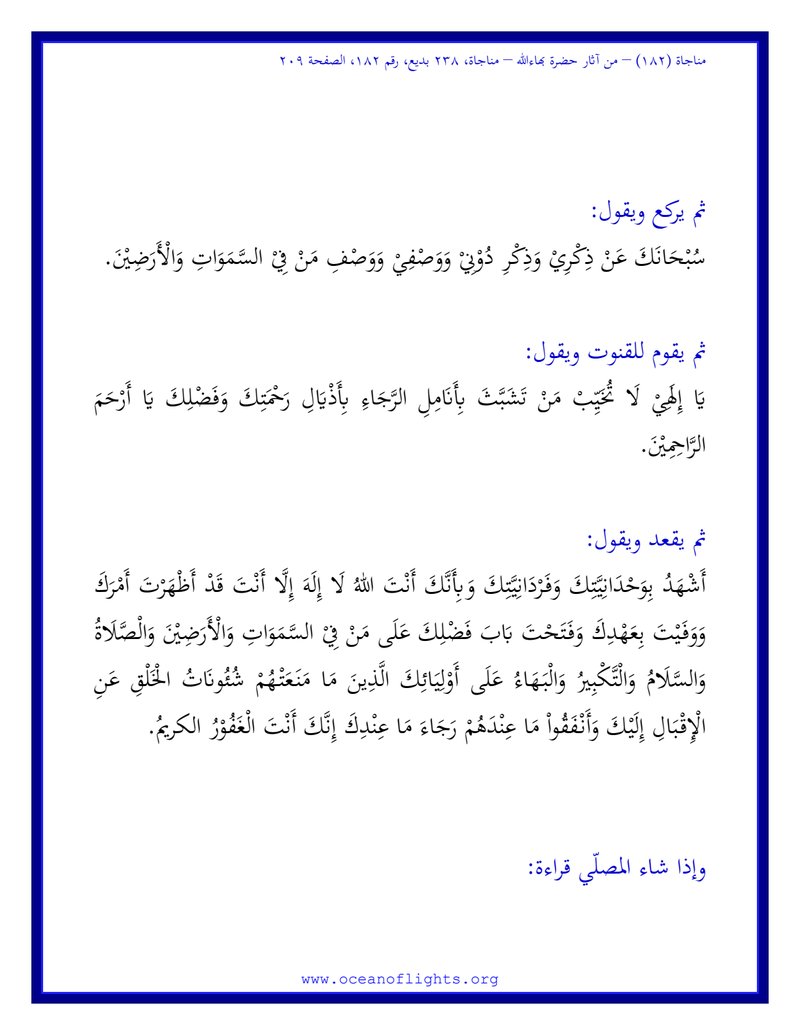 مناجاة (١٨٢) – من آثار حضرة بهاءالله – مناجاة، ٢٣٨ بديع، رقم ١٨٢، الصفحة ٢٠٩
ثم يركع ويقول:
سُبْحَانَكَ عَنْ ذِكْرِيْ وَذِكْرِ دُوْنِيْ وَوَصْفِيْ وَوَصْفِ مَنْ فِيْ السَّمَوَاتِ وَالْأَرَضِيْنَ.
ثم يقوم للقنوت ويقول:
يَا إِلَهِيْ لَا تُخَيِّبْ مَنْ تَشَبَّثَ بِأَنَامِلِ الرَّجَاءِ بِأَذْيَالِ رَحْمَتِكَ وَفَضْلِكَ يَا أَرْحَمَ
الرَّاحِمِيْنَ.
ثم يقعد ويقول:
أَشْهَدُ بِوَحْدَانِيَّتِكَ وَفَرْدَانِيَّتِكَ وَبِأَنَّكَ أَنْتَ اللهُ لَا إِلَهَ إِلَّا أَنْتَ قَدْ أَظْهَرْتَ أَمْرَكَ
وَوَفَيْتَ بِعَهْدِكَ وَفَتَحْتَ بَابَ فَضْلِكَ عَلَى مَنْ فِيْ السَّمَوَاتِ وَالْأَرَضِيْنَ وَالْصَّلَاةُ
وَالسَّلَامُ وَالْتَّكْبِيرُ وَالْبَهَاءُ عَلَى أَوْلِيَائِكَ الَّذِينَ مَا مَنَعَتْهُمْ شُئُونَاتُ الْخَلْقِ عَنِ
الْإِقْبَالِ إِلَيْكَ وَأَنْفَقُواْ مَا عِنْدَهُمْ رَجَاءَ مَا عِنْدِكَ إِنَّكَ أَنْتَ الْغَفُوْرُ الكريمُ.
وإذا شاء المصلّي قراءة:
www.oceanoflights.org